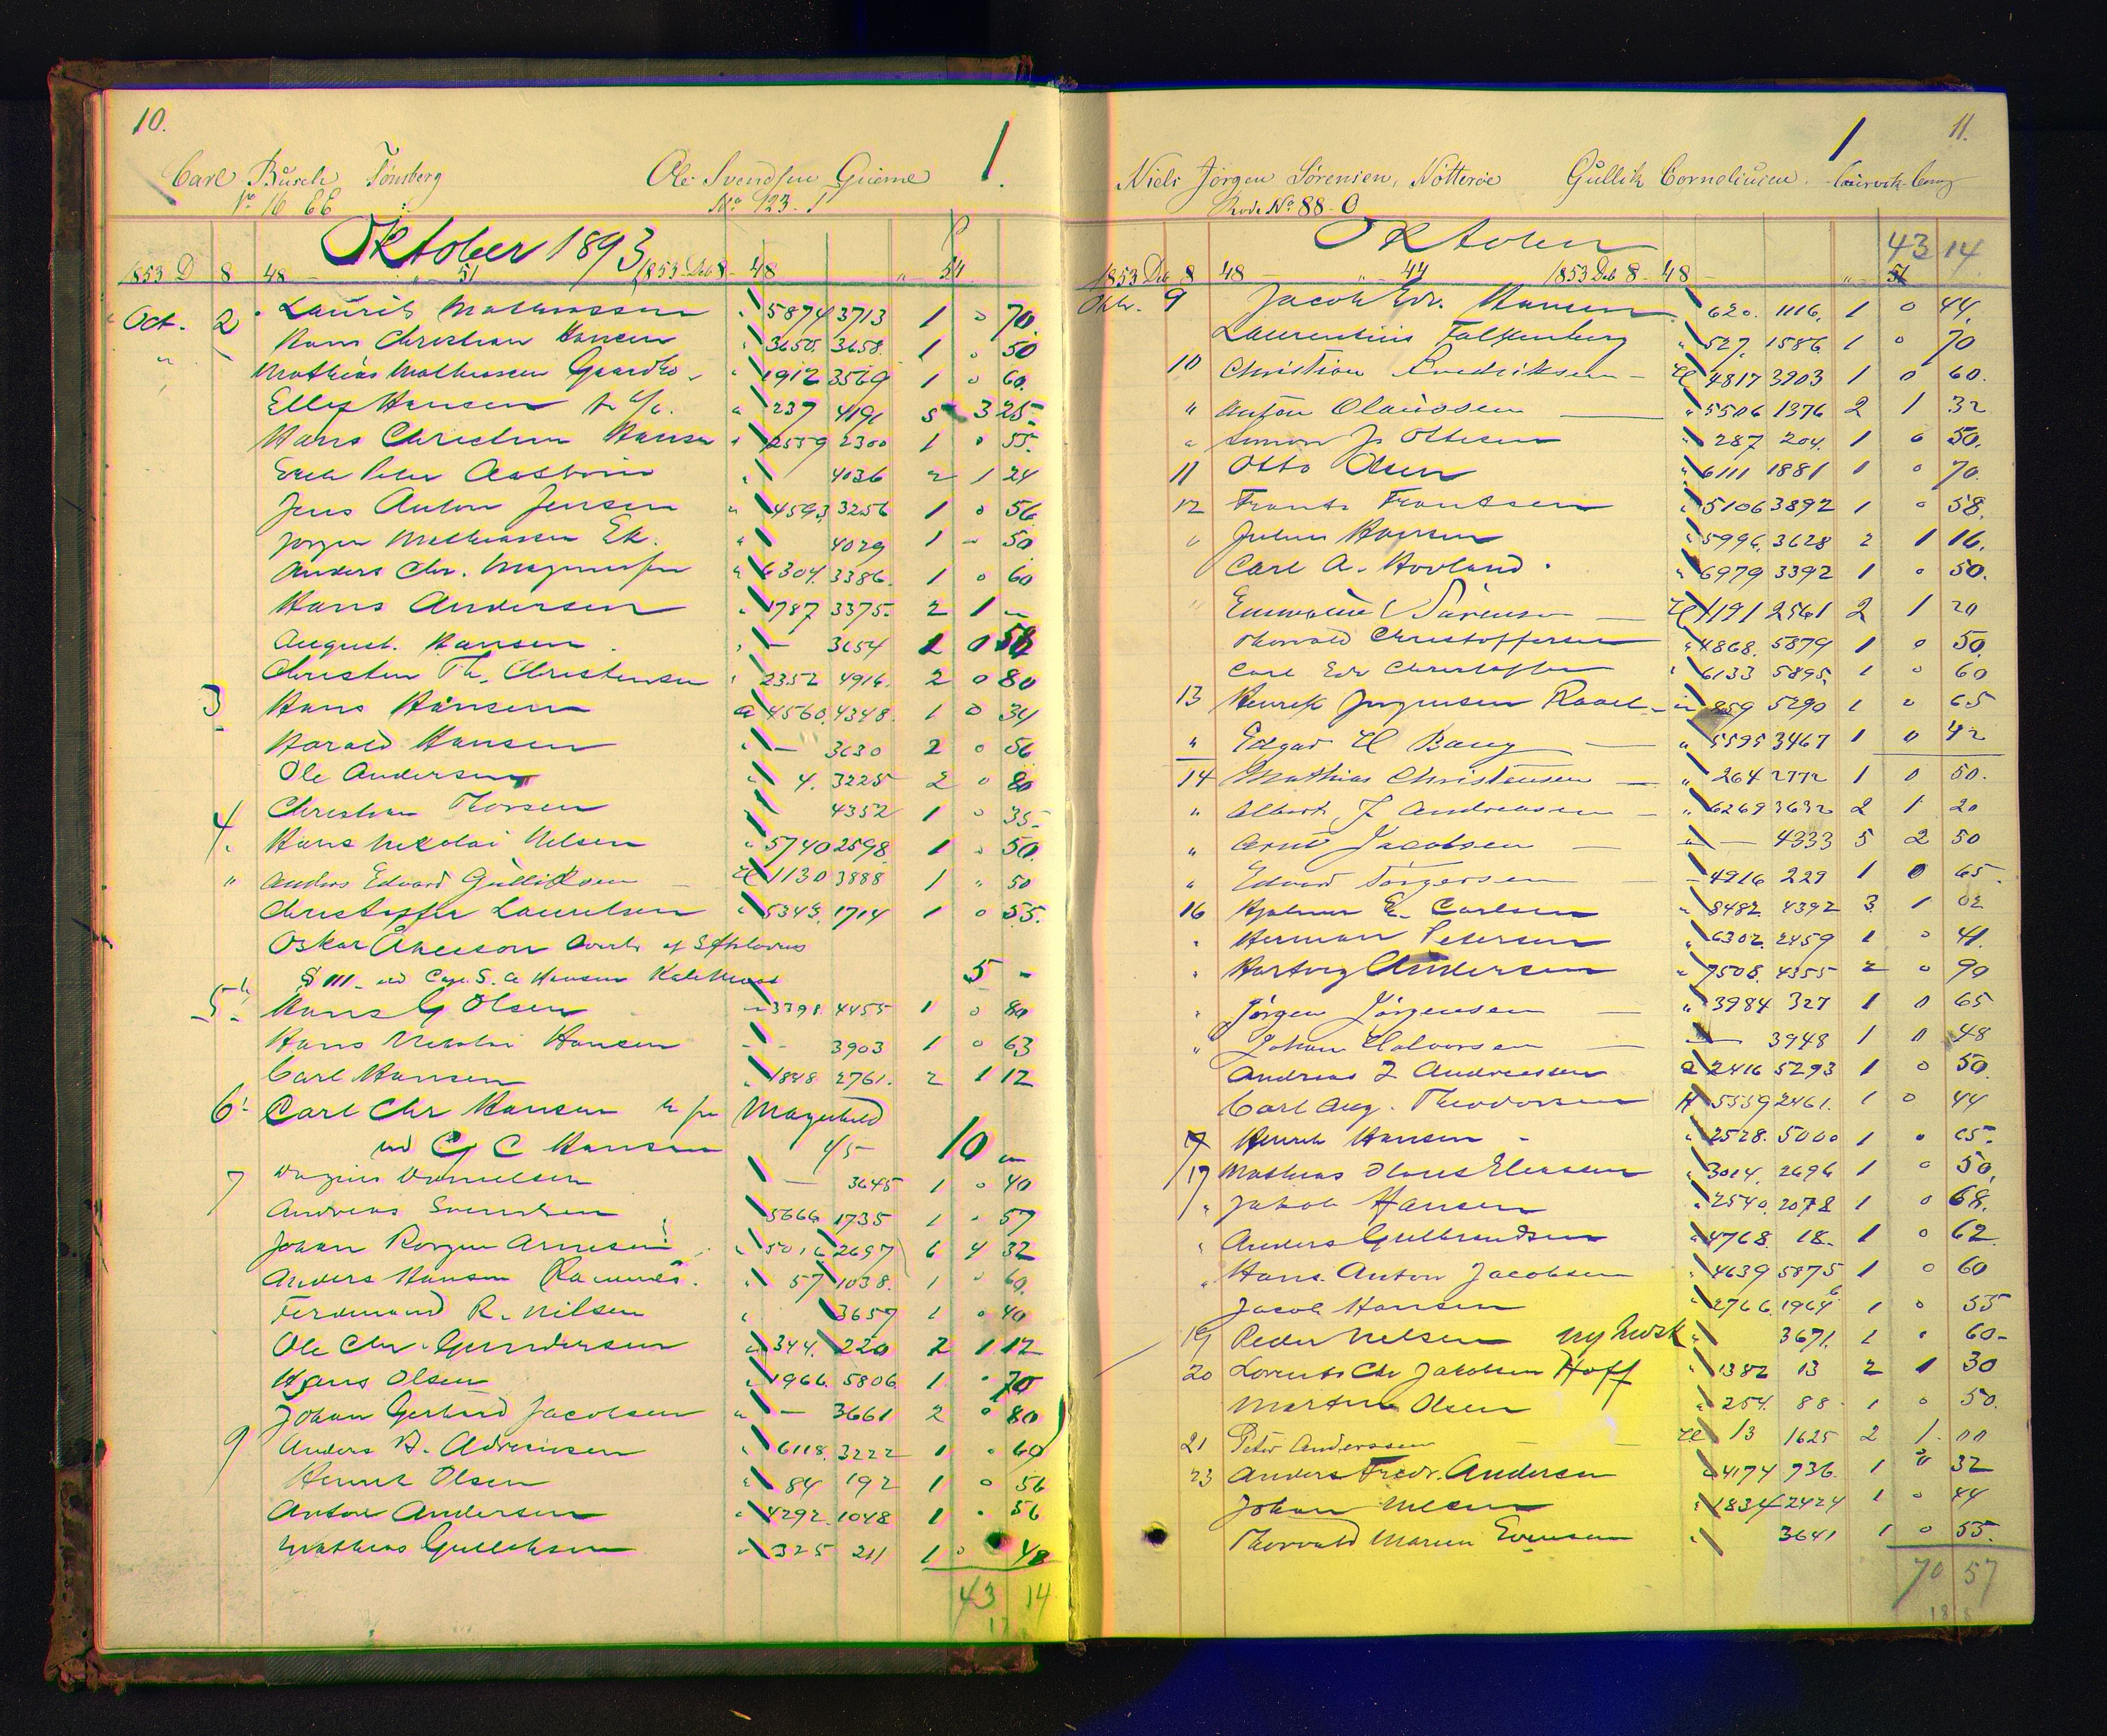 10.
1
Carl Busch Tønsberg
Ole Svendsen
No 16 EE
No 123. 1
Oktober 1893
1853 D 8 48 — " 51 1853 Deb 8 - 48 " 54
Oct. 2 Laurits Mathiassen " 5874 3713 1 0 70
" Hans Christian Hansen " 3650. 3658. 1 0 50
Mathias Mathiassen " 1912 3569 1 0 60.
Ellef Hansen " 237 4191 5 3 25
Hans Christian Hansen " 2559 2300 1 0 55.
Peter " 4036 2 1 24
Jens Anton Jensen " 4593 3256 1 0 56
Jørgen Mathiassen Ek. " 4029 1 - 50
Anders Chr. Magnussen " 6304. 3386. 1 0 60
Hans Andersen " 1787 3375. 2 1 "
August. Hansen " — 3654 0
Christen Th. Christensen " 2352 4916. 2 0 80
3 Hans Hansen a 4560. 4348. 1 0 34
Harald Hansen " — 3630 2 0 56
Ole Andersen " 4. 3225 2 0 80
4 Christian Thorsen 4352 1 0 35
Hans Nikolai Nilsen " 5740 2598 1 0 50
" Anders Edvard Gulliksen — 1130 3888 1 " 50
Christoffer Lauritsen " 5343. 1714 1 0 55.
Oskar Åkesson
§ 111 - ved Capt. S. A Hansen 5 -
5 Hans G Olsen 3391. 4455 1 0 80
Hans Nikolai Hansen - - 3903 1 0 63
Carl Hansen 1848 2761. 2 1 12
6 Carl Chr Hansen
ved C C Hansen 4/5 10 "
7 Danielsen — 3645 1 0 40
Andreas Svendsen 5666 1735 1 0 57
Johan Arnesen " 5016 2697 6 4 32
Anders Hansen " 57 1038. 1 0 60.
Ferdinand R. Nilsen " 3657 1 0 40
Ole Chr. Gundersen " 344. 220 2 1 12
Hans Olsen " 1966. 5806 1 0 70
Johan Gerhard Jacobsen " — 3661 2 0 80
9 Anders A. " 6118. 3222 1 0 60
Henrik Olsen " 84 192 1 0 56
Anton Andersen " 4292. 1048 1 0 56
Mathias Gulliksen " 325 211 1 0 48
43 14
11.
1
Niels Jørgen Sørensen, Nøtterøe
Gullik Corneliusen.
Rode No 88 - 0
Oktober 43 14
1853 Deb 8 48 — " 44 1853 Deb 8 - 48 - "
Oktbr. 9 Jacob Edv. Hansen 620. 1116. 1 0 44.
Laurentius Falkenberg " 527. 1586 1 0 70
10 Christian Fredriksen — 4817 3903 1 0 60.
" Anton Olaussen — " 5506 1376 2 1 32
" Simon J. Ottesen " 287 204. 1 0 50.
11 Otto Olsen " 6111 1881 1 0 70.
12 Frants Frantsen " 5106 3892 1 0 58.
" Julius Hansen " 5996. 3628 2 1 16.
Carl A. Hovland. " 6979 3392 1 0 50.
" Sørensen — 1191 2561 2 1 20
Thorvald Christoffersen " 4868. 5879 1 0 50
Carl Edv Christoffersen " 6133 5895. 1 0 60
13 Henrik Jørgensen 859 5290 1 0 65
" Edgar H Bang — " 5595 3467 1 0 42
14 Mathias Christensen — " 264 2772 1 0 50.
" Albert J Andreassen — " 6269 3632 2 1 20
" Jacobsen — " — 4333 5 2 50
" Edvard Torgersen — - 4916 229 1 0 65.
16 Hjalmar E. Carlsen " 8482. 4392 3. 1 02
" Herman Petersen " 6302. 2459 1 0 41.
" Hartvig Andersen " 7508. 4355 2 0 90
" Jørgen Jørgensen — " 3984 327 1 0 65
" Johan Halvorsen — — 3948 1 0 48
Andreas J Andreassen a 2416 5293 1 0 50
Carl Aug. Theodorsen H 5559 2461. 1 0 44
Henrik Hansen - " 2528. 5000 1 0 65.
17 Mathias Eliassen " 3014. 2696 1 0 50.
" Jakob Hansen " 2540. 2078 1 0 68.
" Anders Gulbrandsen " 4768. 18. 1 0 62
" Hans. Anton Jacobsen " 4639 5875 1 0 60
Jacob Hansen " 2766. 1964 1 0 55
19 Peder Nilsen " 3671. 1 0 60-
20 Lorents Chr Jakobsen Hoff " 1382 13 2 1 30
Martin Olsen " 254. 88. 1 0 50.
21 Peter Anderssen — — 13 1625 2 1. 00
23 Anders Fredr. Andersen " 4174 736. 1 0 32
Johan Nilsen " 1834 2424 1 0 44
Thorvald Evensen " 3641 1 0 55.
70 57